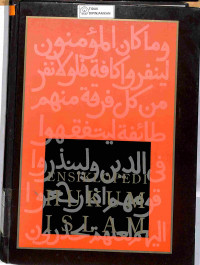 وما كان المؤمنون
لينفروا كافة فلولا نفر
من كل فرقة منهم
طائفة ليتفقهوا
في الدين ولينذروا
ENSIKLOPEDI
HUKUM
قومهم إذا رجعوا
ISLAM
إليهم لعلهم يحذرون